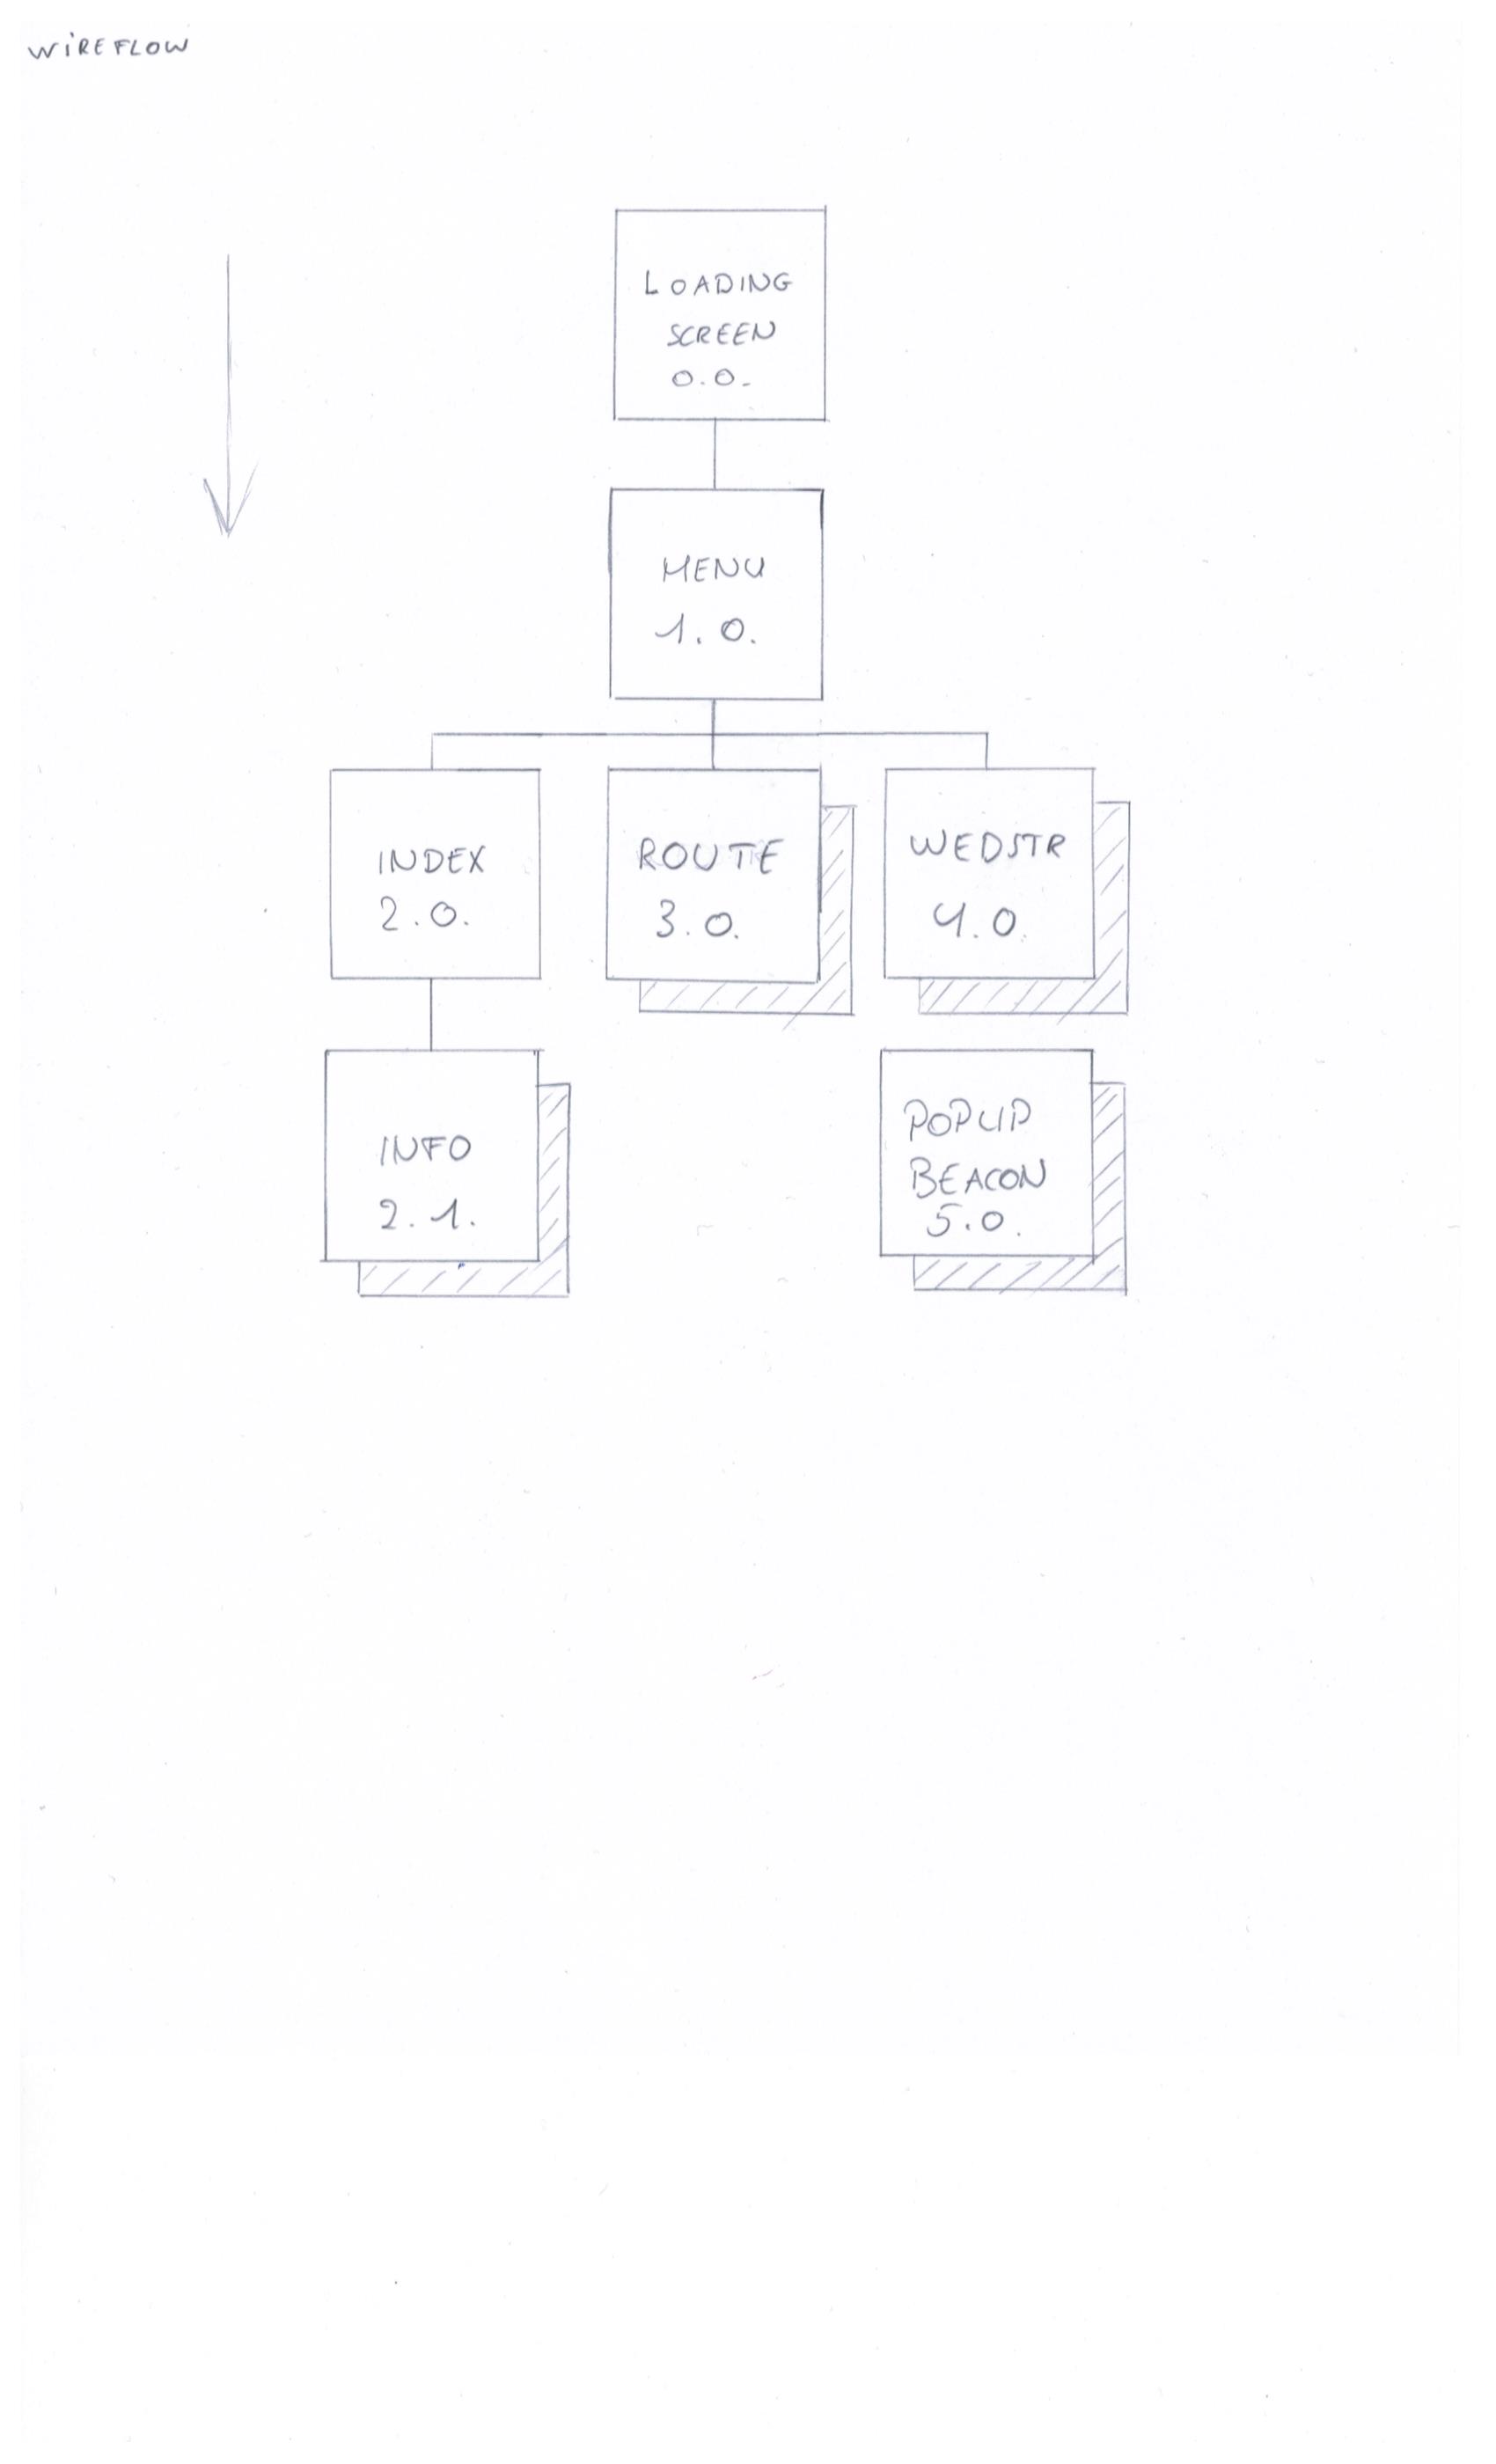 WiREFLOW
LOADING
SCREEN
0.0.
MENU
1.0.
INDEX
2.0.
ROUTE
3.0.
WEDSTR
4.0.
INFO
2.1.
POPUP
BEACON
5.0.